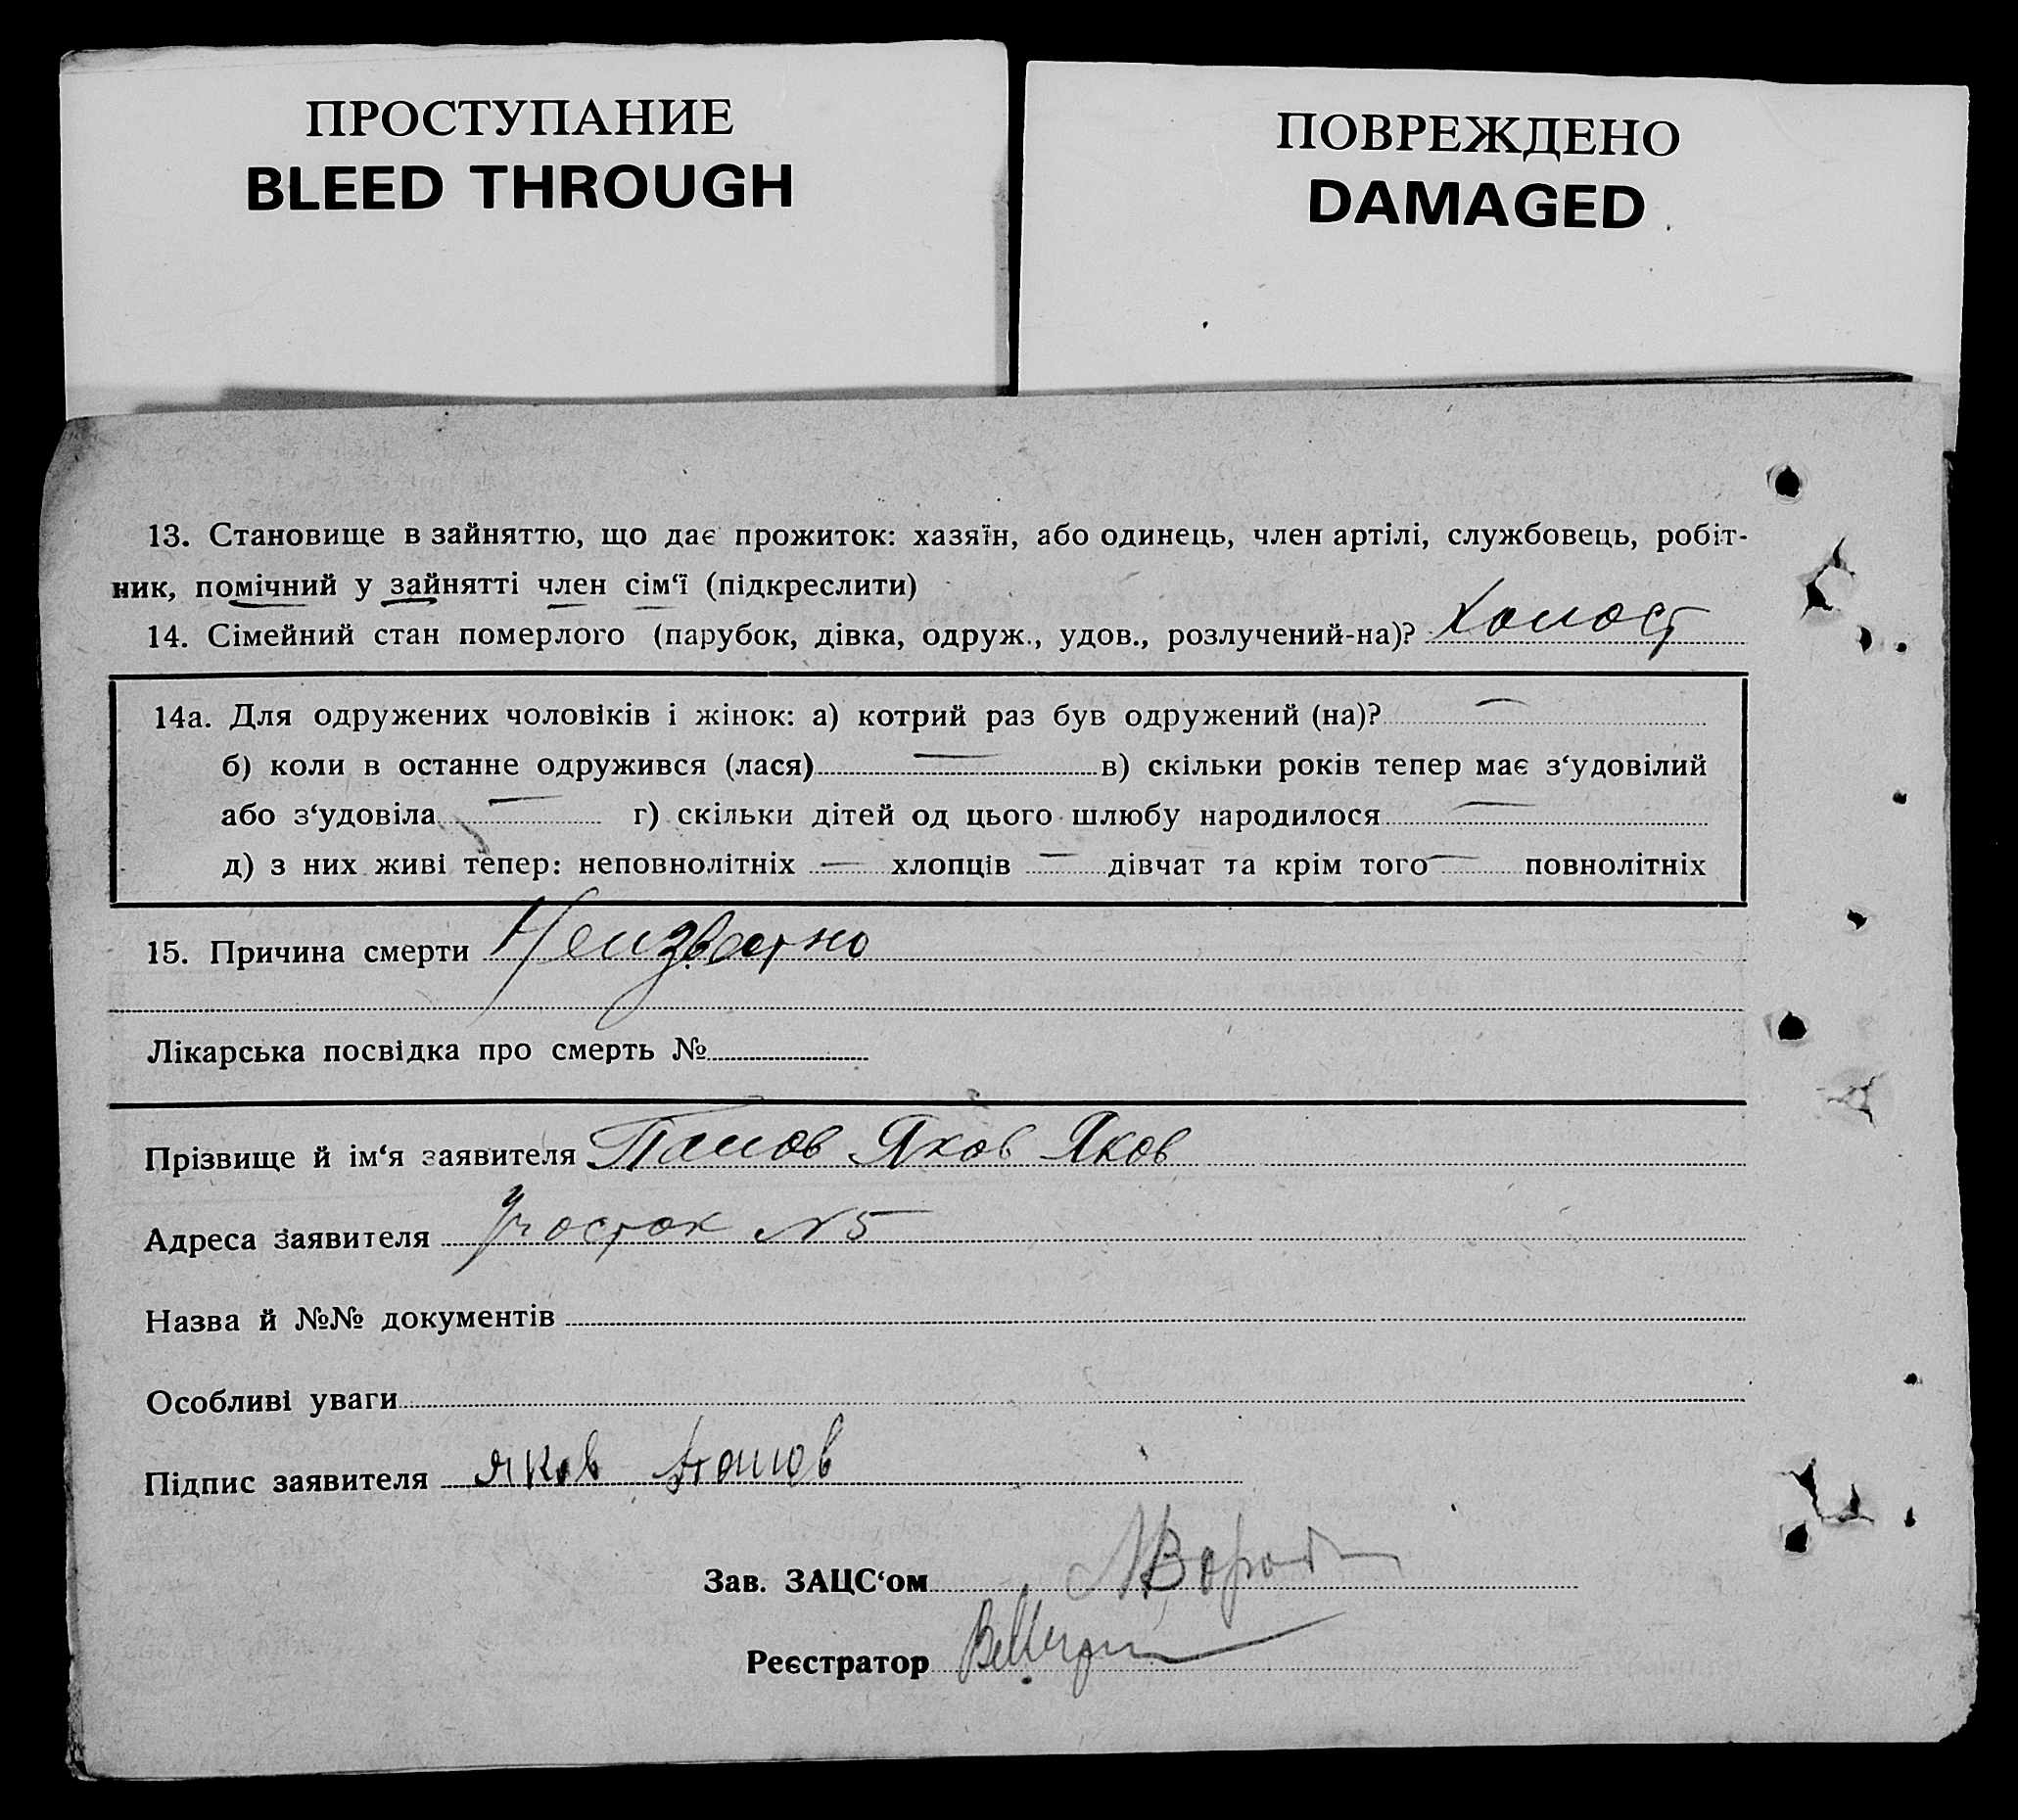 ПРОСТУПАНИЕ
BLEED THROUGH
ПОВРЕЖДЕНО
DAMAGED
13. Становище в зайняттю, що дає прожиток: хазяїн, або одинець, член артілі, службовець, робіт-
ник, помічний у зайнятті член сім‘ї (підкреслити)
14. Сімейний стан померлого (парубок, дівка, одруж., удов., розлучений-на)? Холост
14а. Для одружених чоловіків і жінок: а) котрий раз був одружений (на)? —
б) коли в останне одружився (лася) — в) скільки років тепер має з‘удовілий
або з‘удовіла — г) скільки дітей од цього шлюбу народилося —
д) з них живі тепер: неповнолітніх — хлопців — дівчат та крім того — повнолітніх
15. Причина смерти Неизвестно
Лікарська посвідка про смерть №
Прізвище й ім‘я заявителя Яков Яков
Адреса заявителя Участок №5
Назва й №№ документів
Особливі уваги
Підпис заявителя Яков
Зав. ЗАЦС‘ом
Реєстратор